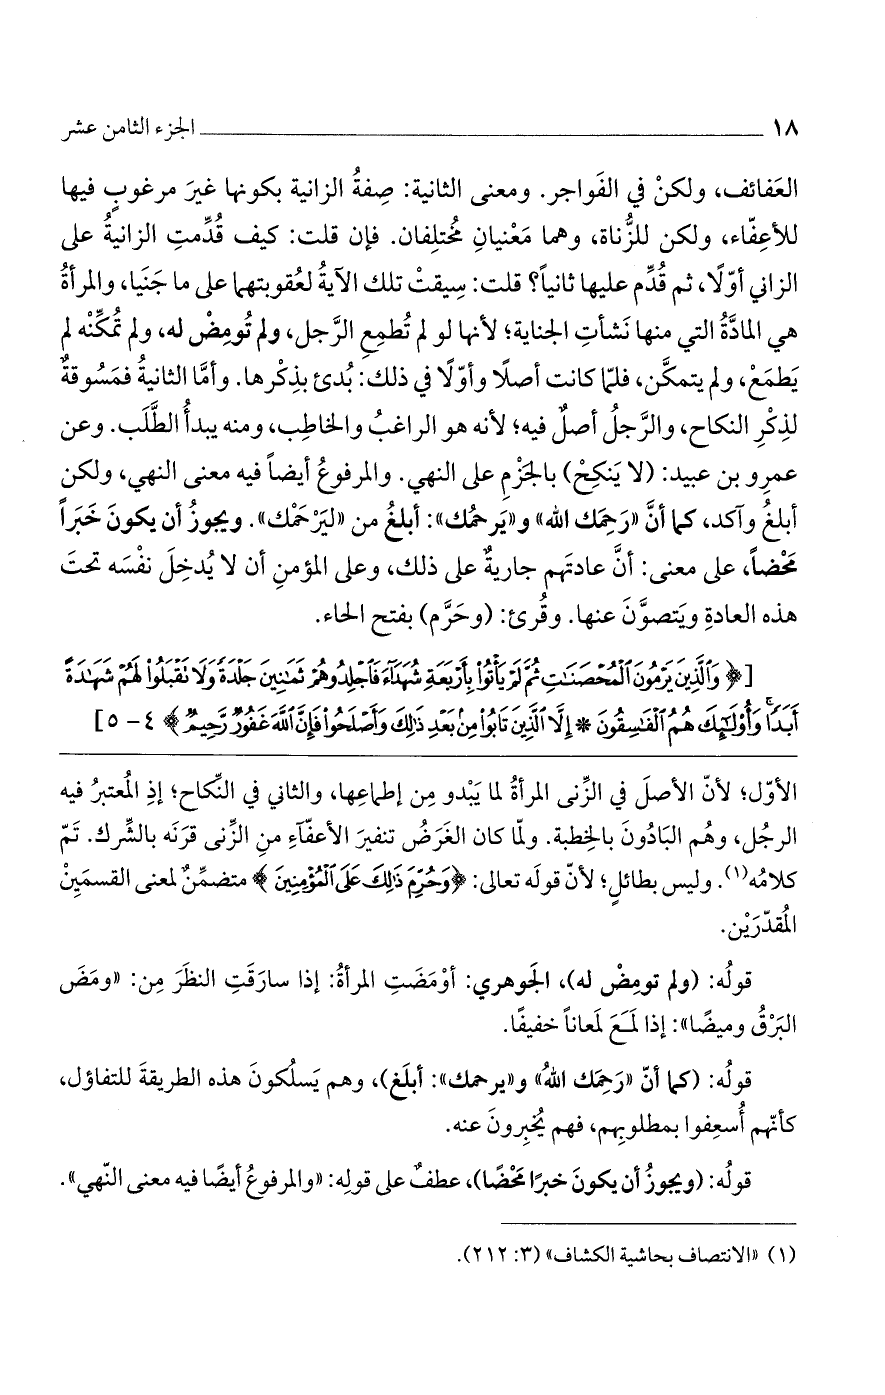 ١٨ الجزء الثامن عشر
العَفائف، ولكنْ في الفَواجر. ومعنى الثانية: صِفةُ الزانية بكونها غيرَ مرغوبٍ فيها
للأعِفّاء، ولكن للزُّناة، وهما مَعْنيانِ مُختلِفان. فإن قلت: كيف قُدِّمتِ الزانيةُ على
الزاني أوّلًا، ثم قُدِّم عليها ثانياً؟ قلت: سِيقتْ تلك الآيةُ لعُقوبتِهما على ما جَنَيا، والمرأةُ
هي المادَّةُ التي منها نَشأتِ الجناية؛ لأنها لو لم تُطمِعِ الرَّجل، ولم تُومِضْ له، ولم تُمكِّنْه لم
يَطمَعْ، ولم يتمكَّن، فلمّا كانت أصلًا وأوّلًا في ذلك: بُدئ بذِكْرها. وأمَّا الثانيةُ فمَسُوقةٌ
لذِكْرِ النكاح، والرَّجلُ أصلٌ فيه؛ لأنه هو الراغبُ والخاطِب، ومنه يبدأُ الطَّلَب. وعن
عمرِو بن عبيد: (لا يَنكِحْ) بالجَزْمِ على النهي. والمرفوعُ أيضاً فيه معنى النهي، ولكن
أبلغُ وآكد، كما أنَّ «رَحِمَك الله» و«يَرحمُك»: أبلغُ من «ليَرْحَمْك». ويجوزُ أن يكونَ خَبَراً
مَحْضاً، على معنى: أنَّ عادتَهم جاريةٌ على ذلك، وعلى المؤمنِ أن لا يُدخِلَ نفْسَه تحتَ
هذه العادةِ ويَتصوَّنَ عنها. وقُرئ: (وحَرَّم) بفتح الحاء.
[﴿ وَٱلَّذِينَ يَرْمُونَ ٱلْمُحْصَنَٰتِ ثُمَّ لَمْ يَأْتُوا۟ بِأَرْبَعَةِ شُهَدَآءَ فَٱجْلِدُوهُمْ ثَمَٰنِينَ جَلْدَةً وَلَا نَقْبَلُوا۟ لَهُمْ شَهَٰدَةً
أَبَدًا ۚ وَأُو۟لَٰٓئِكَ هُمُ ٱلْفَٰسِقُونَ * إِلَّا ٱلَّذِينَ تَابُوا۟ مِنۢ بَعْدِ ذَٰلِكَ وَأَصْلَحُوا۟ فَإِنَّ ٱللَّهَ غَفُورٌ رَّحِيمٌ ﴾ ٤ - ٥]
الأوّل؛ لأنّ الأصلَ في الزِّنى المرأةُ لما يَبْدو مِن إطماعِها، والثاني في النِّكاح؛ إذِ المُعتبرُ فيه
الرجُل، وهُم البَادُونَ بالخِطبة. ولمّا كان الغَرَضُ تنفيرَ الأعفّآءِ منِ الزِّنى قرَنَه بالشِّرك. تَمّ
كلامُه(١). وليس بطائلٍ؛ لأنّ قولَه تعالى: ﴿وَحُرِّمَ ذَٰلِكَ عَلَى ٱلْمُؤْمِنِينَ ﴾ متضمِّنٌ لمعنى القسمَيِنْ
المُقدّرَيْن.
قولُه: (ولم تومِضْ له)، الجَوهري: أوْمَضَتِ المرأةُ: إذا سارَقَتِ النظرَ مِن: «ومَضَ
البَرْقُ وميضًا»: إذا لَمَعَ لَمعاناً خفيفًا.
قولُه: (كما أنّ «رَحِمَك اللهُ» و«يرحمك»: أبلَغ)، وهم يَسلُكونَ هذه الطريقةَ للتفاؤل،
كأنّهم أُسعِفوا بمطلوبِهم، فهم يُخبِرونَ عنه.
قولُه: (ويجوزُ أن يكونَ خبرًا مَحْضًا)، عطفٌ على قولِه: «والمرفوعُ أيضًا فيه معنى النّهي».
(١) «الانتصاف بحاشية الكشاف» (٣: ٢١٢).